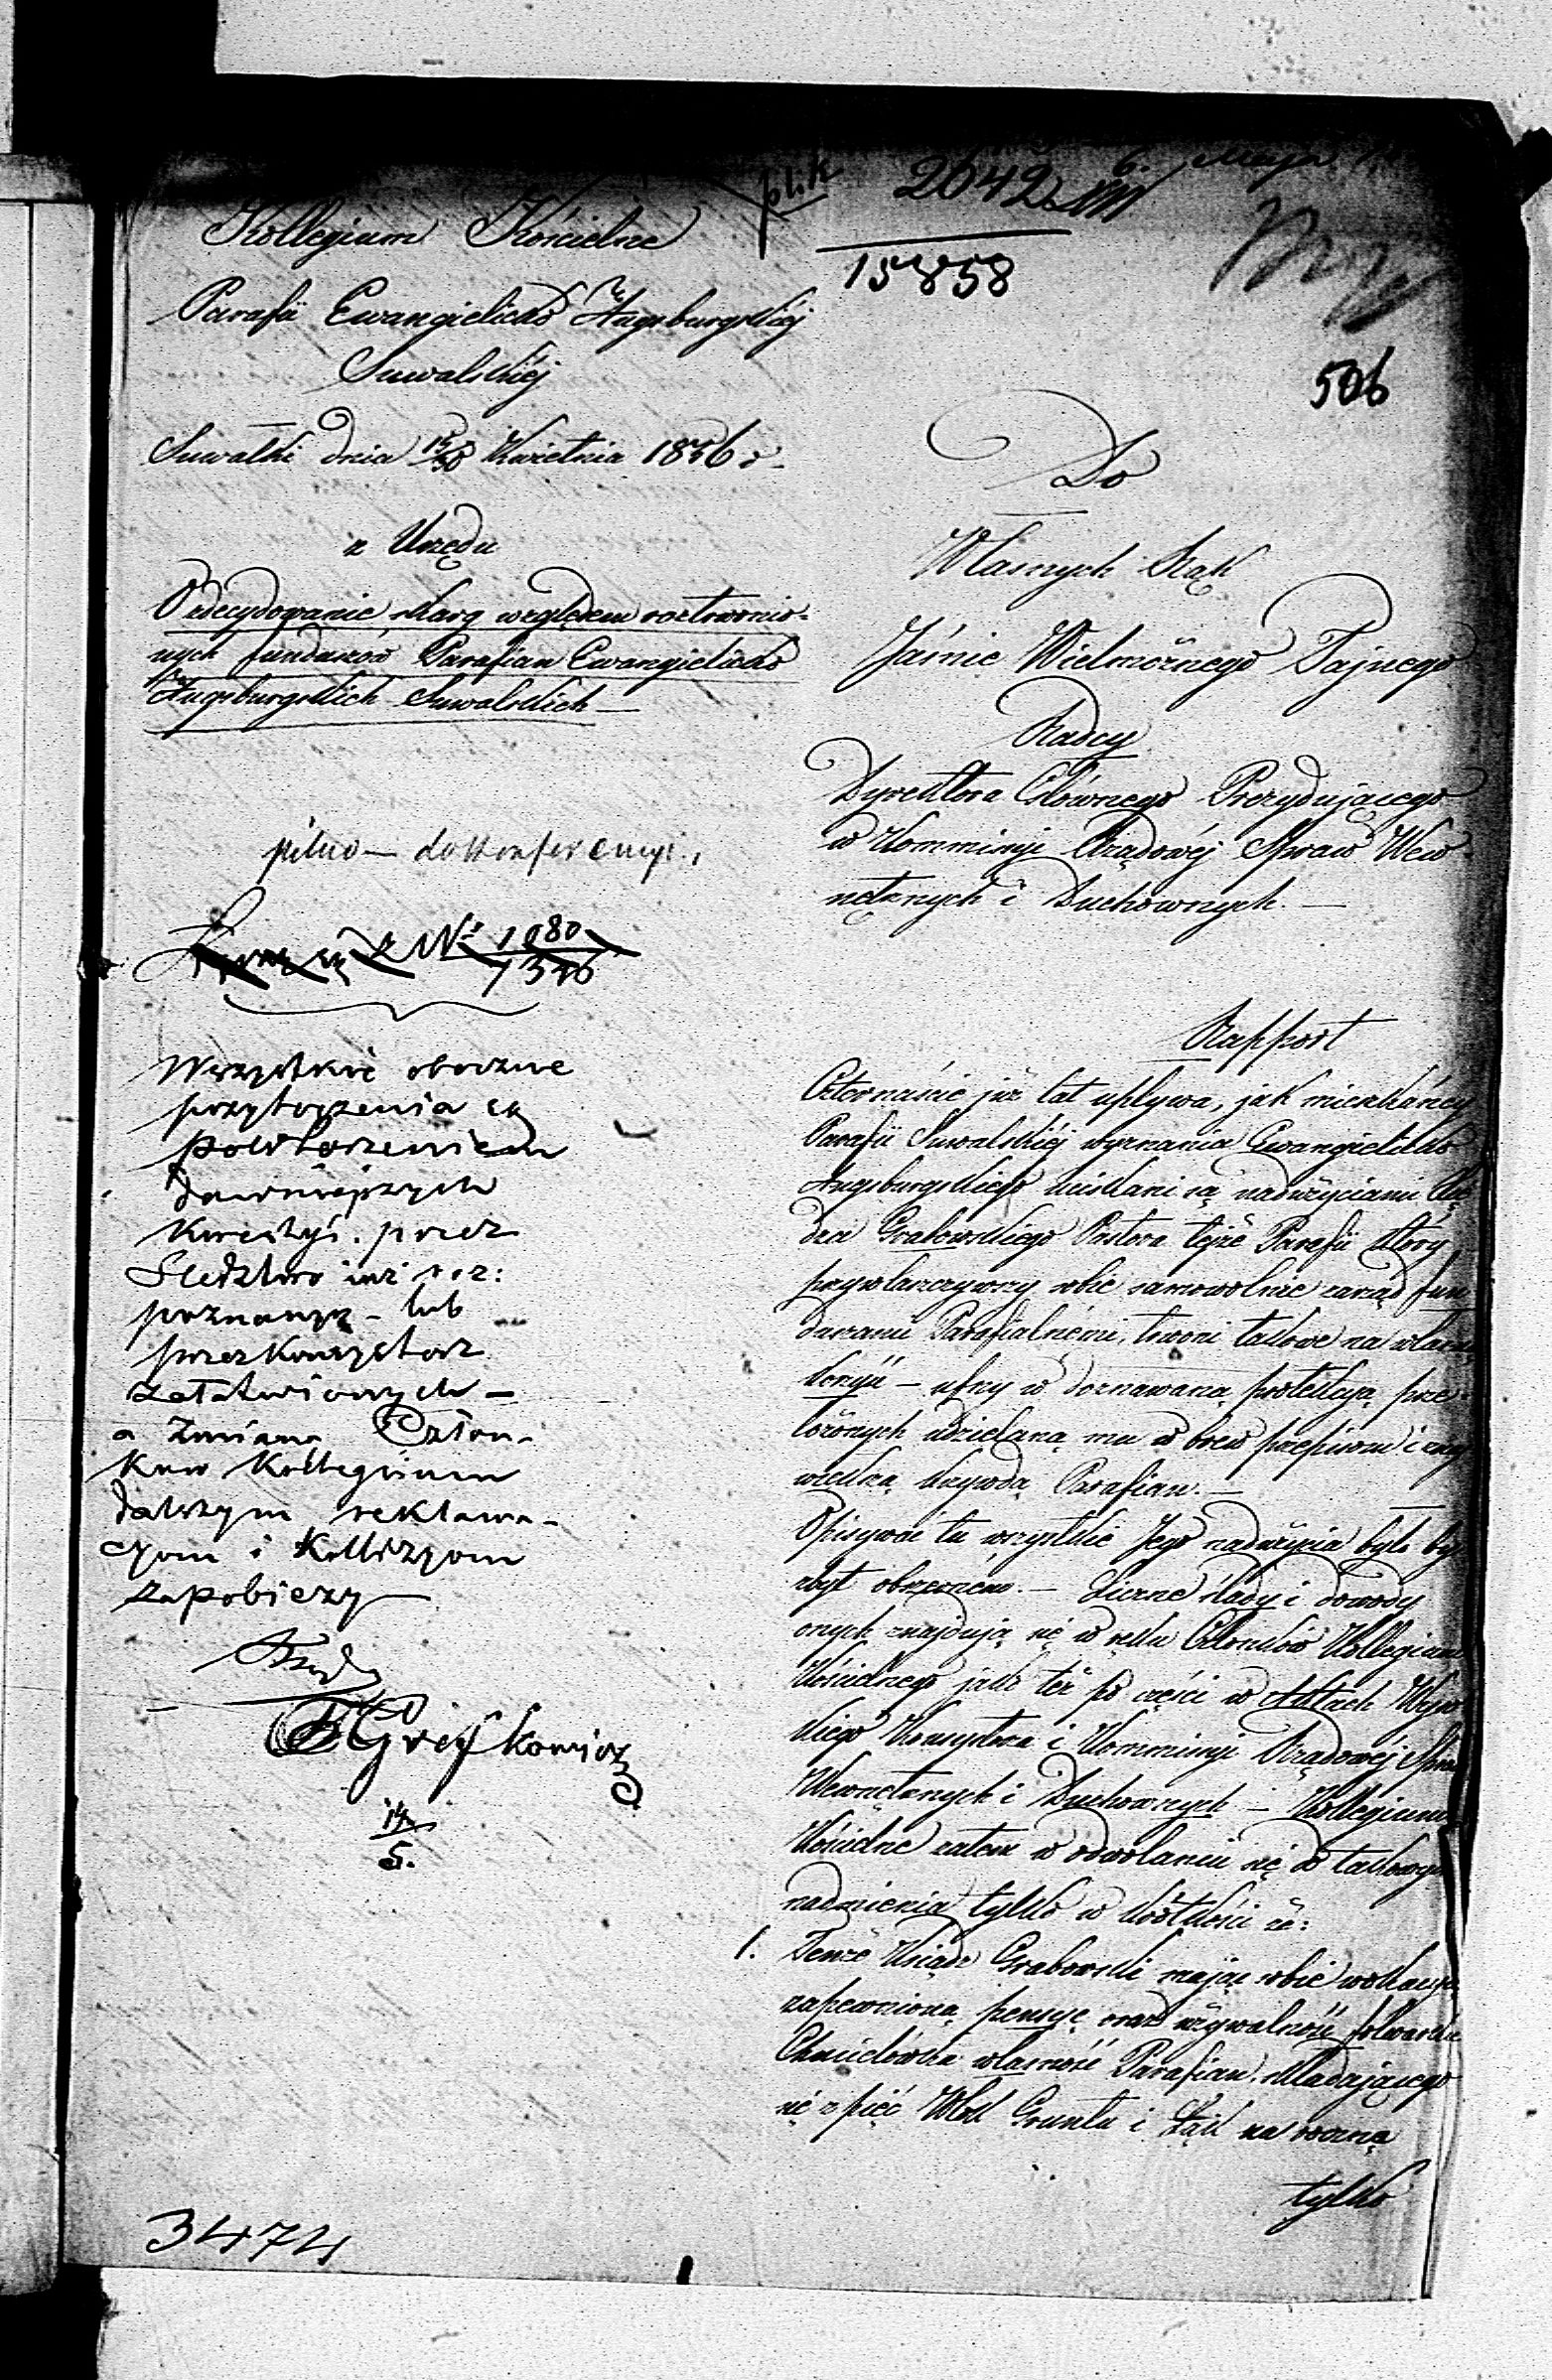 plik 2642 6. Maja
15858
506
Kollegium Kościelne
Parafii Ewangielicko Augsburgskiéj
Suwalskiéj
Suwałki dnia 18/30 Kwietnia 1856 r.
z Urzędu
O zdecydowanie skarg względem roztrwonio-
nych funduszów Parafian Ewangielicko
Augsburgskich Suwalskich —
pilno — do konferencyi.
Łączy się z № 1080
Wszystkie oboczne
przytoczenia są
powtórzeniem
dawniejszych
kwestyi. przez
Sledztwo iuż roz:
poznanych - lub
przez Konsystorz
załatwionych —
a Zmiana Człon-
kuw Kollegium
dalszym reklama-
cyom i Kollizyom
zapobieży
14/5.
3474
Do
Własnych Rąk
Jaśnie Wielmożnego Tajnego
Radcy
Dyrektora Głównego Prezydującego
w Kommissyi Rządowéj Spraw Wew-
nętrznych i Duchownych. —
Rapport
Czternaście już lat upływa, jak mieszkańcy
Parafii Suwalskiéj wyznania Ewangielicko
Augsburgskiego uciskani są nadużyciami Xię
dza Grabowskiego Pastora tejże Parafii który
przywłaszczywszy sobie samowolnie zarząd fun
duszami Parafialnémi, trwoni takowe na własną
korzyść — ufny w doznawaną protekcyą prze-
łożonych udzielaną mu w brew przepisom i z naj
większą krzywdą Parafian. —
Opisywać tu wszystkie Jego nadużycia było by
zbyt obszerném. — Liczne ślady i dowody
onych znajdują się w ręku Członków Kollegium
Kościelnego jako też po części w Aktach Wyso
kiego Konsystorza i Kommissyi Rządowéj Spraw
Wewnętrznych i Duchownych — Kollegium
Kościelne zatem w odwołaniu się do takowych
nadmienia tylko w krótkości że:
1. Tenże Ksiądz Grabowski mając sobie wokacyą
zapewnioną pensyę oraz używalność folwarku
własność Parafian składającego
się z pięć Włók Gruntu i Łąk na roczną
tylko